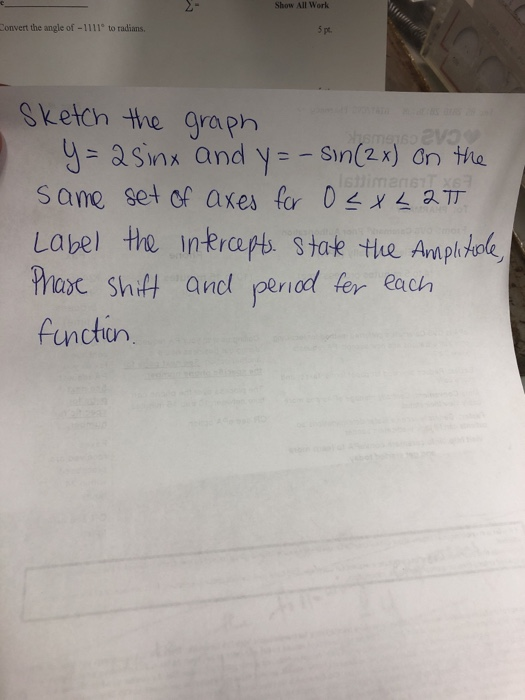 Show All Work
Convert the angle of -1111° to radians. 5 pt.
Sketch the graph
y = 2 sinx and y = - sin(2x) on the
same set of axes for 0 ≤ x ≤ 2π
Label the intercepts. State the Amplitude,
Phase shift and period for each
function.